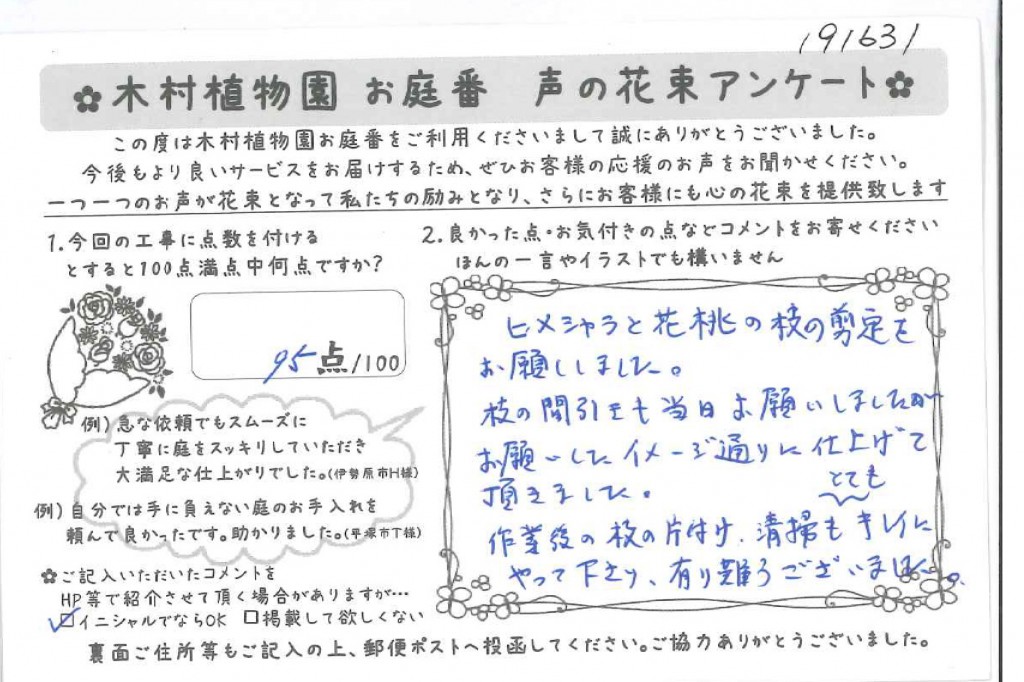 191631
✿木村植物園 お庭番 声の花束アンケート✿
この度は木村植物園お庭番をご利用くださいまして誠にありがとうございました。
今後もより良いサービスをお届けするため、ぜひお客様の応援のお声をお聞かせください。
一つ一つのお声が花束となって私たちの励みとなり、さらにお客様にも心の花束を提供致します
1.今回の工事に点数を付ける
とすると100点満点中何点ですか?
95点/100
例)急な依頼でもスムーズに
丁寧に庭をスッキリしていただき
大満足な仕上がりでした。(伊勢原市H様)
例)自分では手に負えない庭のお手入れを
頼んで良かったです。助かりました。(平塚市T様)
✿ご記入いただいたコメントを
HP等で紹介させて頂く場合がありますが…
☑イニシャルでならOK □掲載して欲しくない
2.良かった点・お気付きの点などコメントをお寄せください
ほんの一言やイラストでも構いません
ヒメシャラと花桃の枝の剪定を
お願いしました。
枝の間引きも当日お願いしましたが
お願いしたイメージ通りに仕上げて
頂きました。
とても
作業後の枝の片付け、清掃もキレイに
やって下さり、有り難うございました。
裏面ご住所等もご記入の上、郵便ポストへ投函してください。ご協力ありがとうございました。